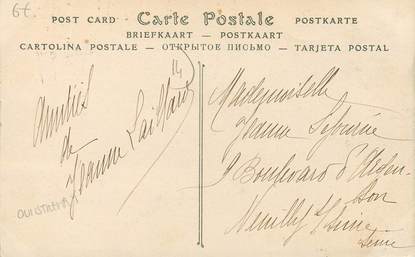 6€
POST CARD Carte Postale POSTKARTE
BRIEFKAART — POSTKAART
CARTOLINA POSTALE — ОТКРЫТОЕ ПИСЬМО — TARJETA POSTAL
Amitiés
de
Jeanne
OUISTREHAM
Mademoiselle
Jeanne
9 Boulevard d'Argen-
son
Neuilly s/Seine
Seine